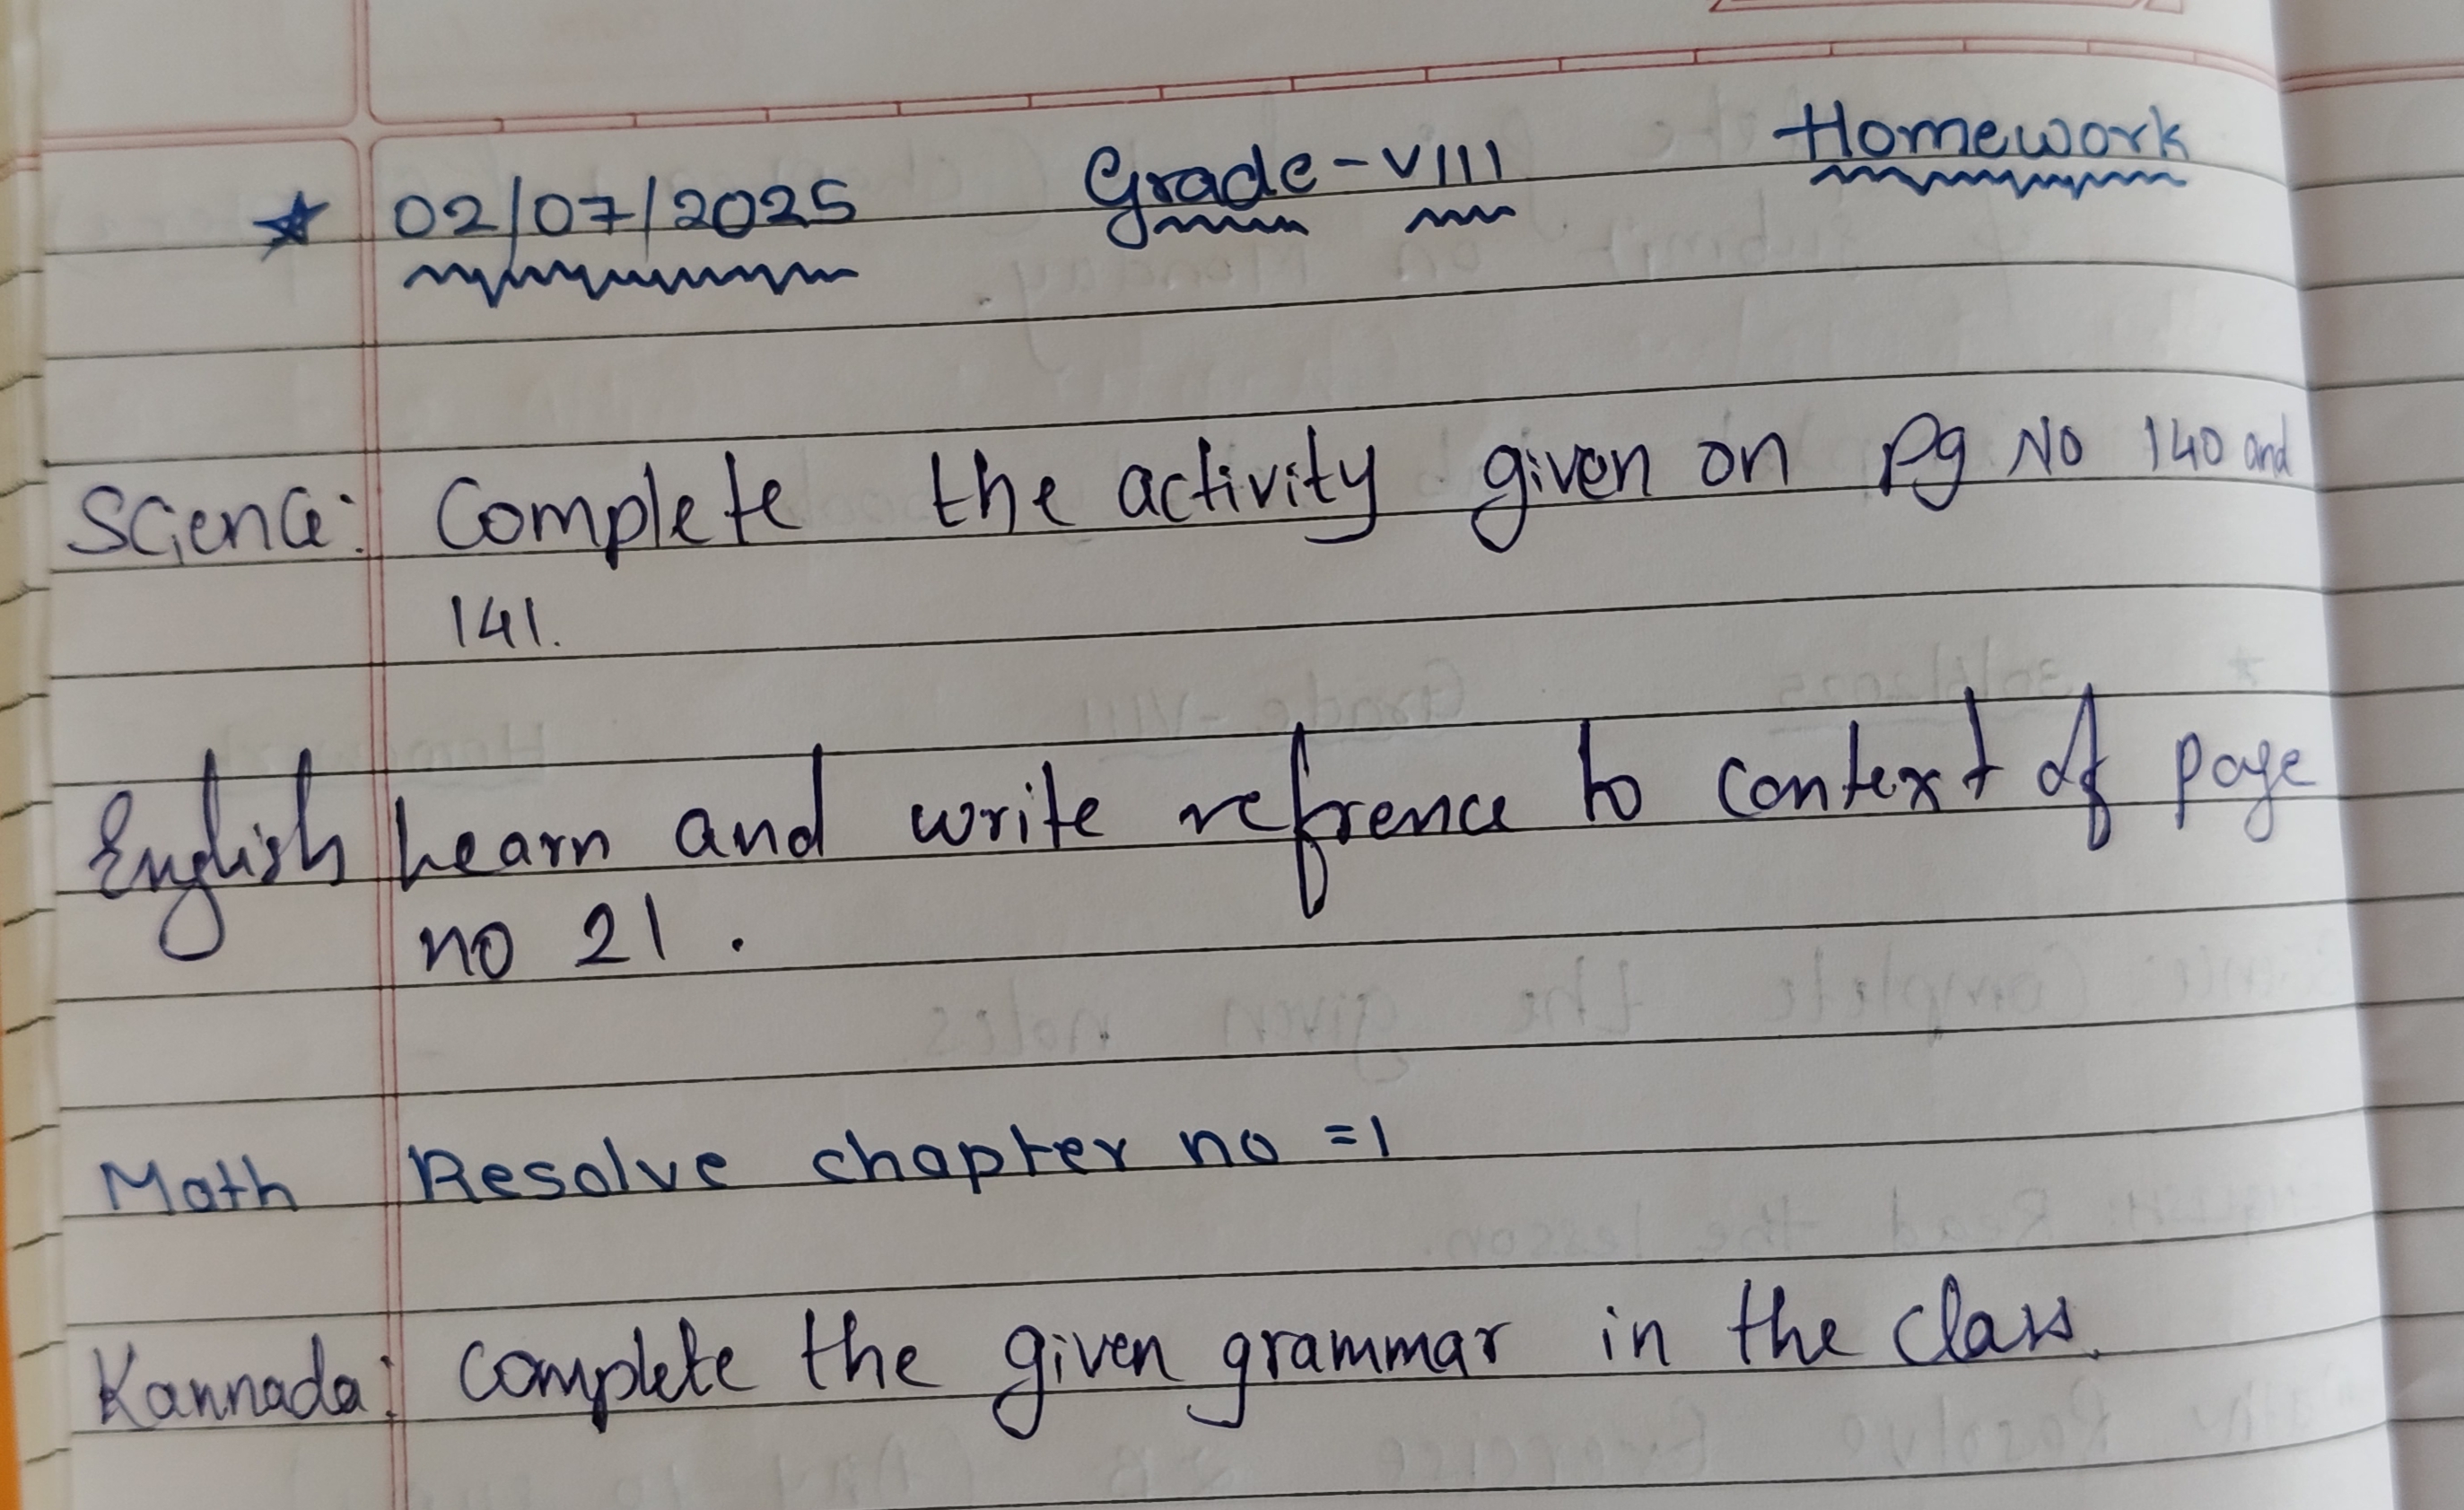 ★ 02/07/2025 Grade-VIII Homework
Science: Complete the activity given on Pg No 140 and
141.
English Learn and write refrence to context of page
no 21.
Math Resolve chapter no =1
Kannada: Complete the given grammar in the class.